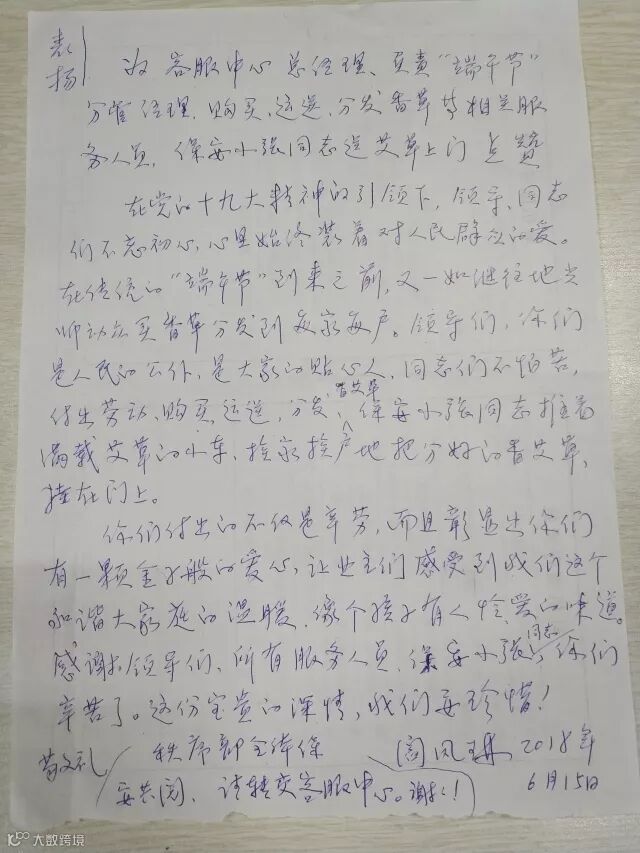 表扬
为客服中心总经理、负责“端午节”
分管经理、购买、运送、分发香草等相关服
务人员，保安小张同志送艾草上门点赞
在党的十九大精神的引领下，领导、同志
们不忘初心，心里始终装着对人民群众的爱。
在传统的“端午节”到来之前，又一如继往地兴
师动众买香草分发到每家每户。领导们，你们
是人民的公仆，是大家的贴心人，同志们不怕苦，
付出劳动、购买、运送、分发香艾草，保安小张同志推着
满载艾草的小车，挨家挨户地把分好的香艾草，
挂在门上。
你们付出的不仅是辛劳，而且彰显出你们
有一颗金子般的爱心，让业主们感受到我们这个
和谐大家庭的温暖，像个孩子有人怜爱的味道。
感谢领导们、所有服务人员、保安小张同志，你们
辛苦了。这份宝贵的深情，我们要珍惜！
敬礼 秩序部全体保 阎风 2018年
安共阅、请转交客服中心。谢谢！ 6月15日
大数跨境